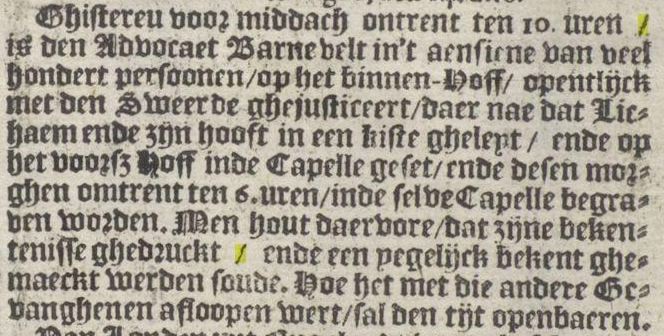 Ghistereu voor middach ontrent ten 10. uren /
is den Advocaet Barnevelt in't aensiene van veel
hondert persoonen/op het binnen-Hoff/ opentlijck
met den Sweerde ghejusticeert/daer nae dat Lic-
haem ende zijn hooft in een kiste gheleyt / ende op
het voorsz Hoff inde Capelle geset/ende desen mor-
ghen omtrent ten 6.uren/inde selve Capelle begra-
ven worden. Men hout daervore/dat zijne beken-
tenisse ghedruckt / ende een yegelijck bekent ghe-
maeckt werden soude. Hoe het met die andere Ge-
vanghenen afloopen wert/sal den tijt openbaeren.